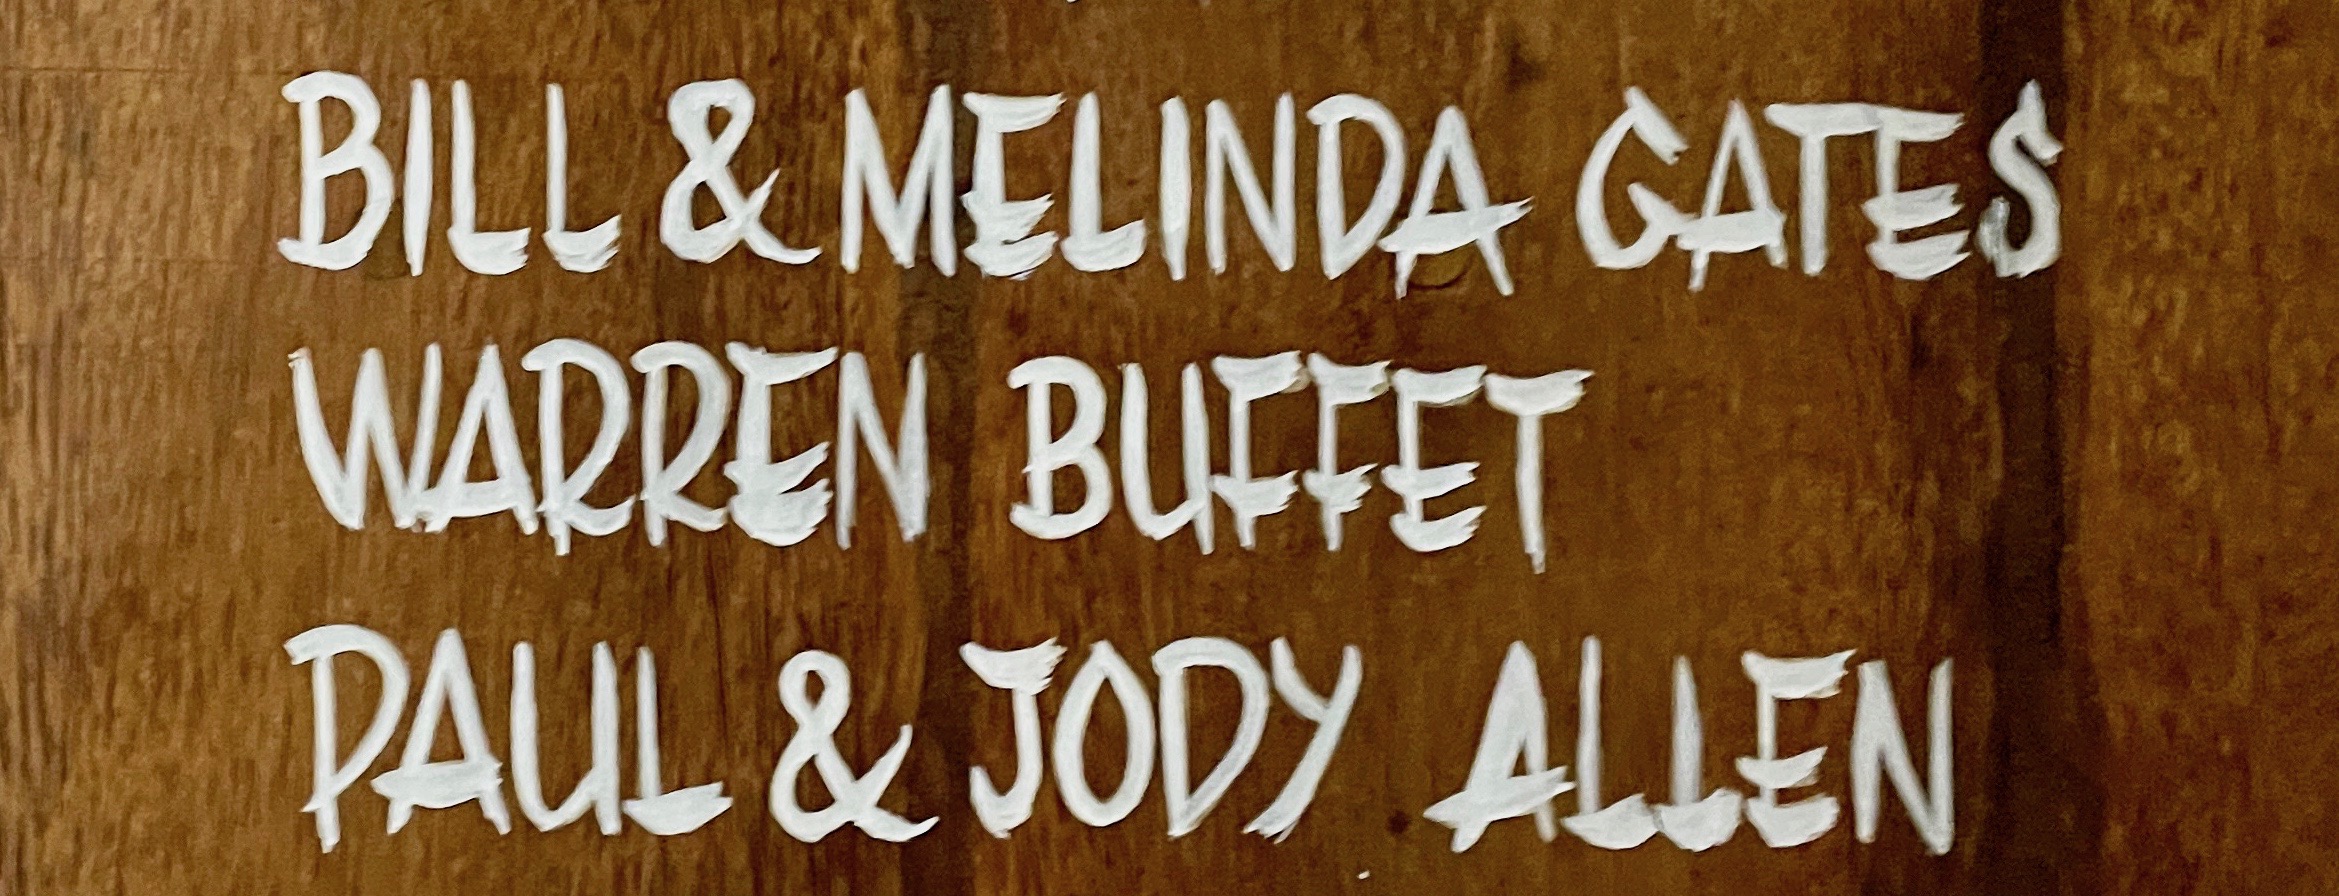 BILL & MELINDA GATES
WARREN BUFFET
PAUL & JODY ALLEN